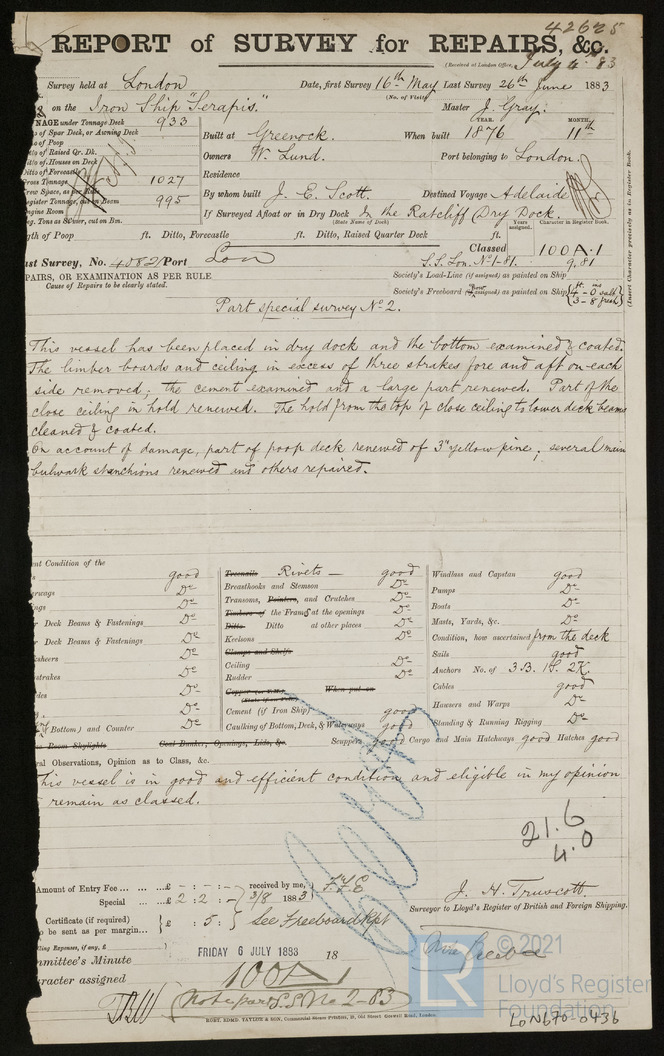 42625
REPORT of SURVEY for REPAIRS, &c.
(Received at London Office, July 83
Survey held at London Date, first Survey 16th May Last Survey 26th June 1883
(No. of Visits)
on the Iron Ship "Serapis." Master J. Gray
NAGE under Tonnage Deck 933
of Spar Deck, or Awning Deck
of Poop
of Raised Qr. Dk.
itto of Houses on Deck
itto of Forecastle
ross Tonnage 1027
rew Space, as per Rule
egister Tonnage, cut on Beam 995
ngine Room
g. Tons as Scivor, cut on Bm.
YEAR. MONTH.
Built at Greenock. When built 1876 11th
Owners W. Lund. Port belonging to London.
Residence
By whom built J. E. Scott. Destined Voyage Adelaide
If Surveyed Afloat or in Dry Dock In the Ratcliff Dry Dock.
(State Name of Dock) Years assigned. Character in Register Book.
gth of Poop ft. Ditto, Forecastle ft. Ditto, Raised Quarter Deck ft.
(Insert Character precisely as in Register Book.
st Survey, No. 4082 Port Lon Classed 100A.1
S.S. Lon. No 1-81. 9.81
PAIRS, OR EXAMINATION AS PER RULE
Cause of Repairs to be clearly stated.
Society's Load-Line (if assigned) as painted on Ship
Society's Freeboard (if assigned) as painted on Ship 4-0 salt
3-8 fresh
Part special survey No 2.
This vessel has been placed in dry dock and the bottom examined & coated.
The limber boards and ceiling in excess of three strakes fore and aft on each
side removed; the cement examined and a large part renewed. Part of the
close ceiling in hold renewed. The hold from the top of close ceiling to lower deck beams
cleaned & coated.
On account of damage, part of poop deck renewed of 3" yellow pine; several main
bulwark stanchions renewed and others repaired.
nt Condition of the
good
Do
Do
r Deck Beams & Fastenings Do
r Deck Beams & Fastenings Do
sheers Do
strakes Do
Do
Do
f Bottom) and Counter Do
Room Skylights Coal Bunker, Openings, Lids, &c.
Treenails Rivets — good
Breasthooks and Stemson Do
Transoms, Pointers, and Crutches Do
Timbers of the Frames at the openings Do
Ditto Ditto at other places Do
Keelsons Do
Clamps and Shelfs
Ceiling Do
Rudder Do
When put on
Cement (if Iron Ship) good
Caulking of Bottom, Deck, & Waterways good
Scuppers good Cargo and Main Hatchways good Hatches good
Windlass and Capstan good
Pumps Do
Boats Do
Masts, Yards, &c. Do
Condition, how ascertained from the deck
Sails good
Anchors No. of 3.B. 1S. 2K.
Cables good
Hawsers and Warps Do
Standing & Running Rigging Do
al Observations, Opinion as to Class, &c.
This vessel is in good and efficient condition and eligible in my opinion
remain as classed.
21.6
4.0
Amount of Entry Fee ... £ - : - : - received by me,
Special ... £ 2 : 2 : - 3/8 1883
Certificate (if required) £ : 5 : See Freeboard Rpt
o be sent as per margin...
lling Expenses, if any, £
J. H. Truscott
Surveyor to Lloyd's Register of British and Foreign Shipping.
mmittee's Minute FRIDAY 6 JULY 1883 18
aracter assigned 100A1
Note part S.S. No 2-83
ROBT. EDMD. TAYLOR & SON, Commercial Steam Printers, 19, Old Street, Goswell Road, London.
LR © 2021
Lloyd's Register
Foundation
LON670-0436